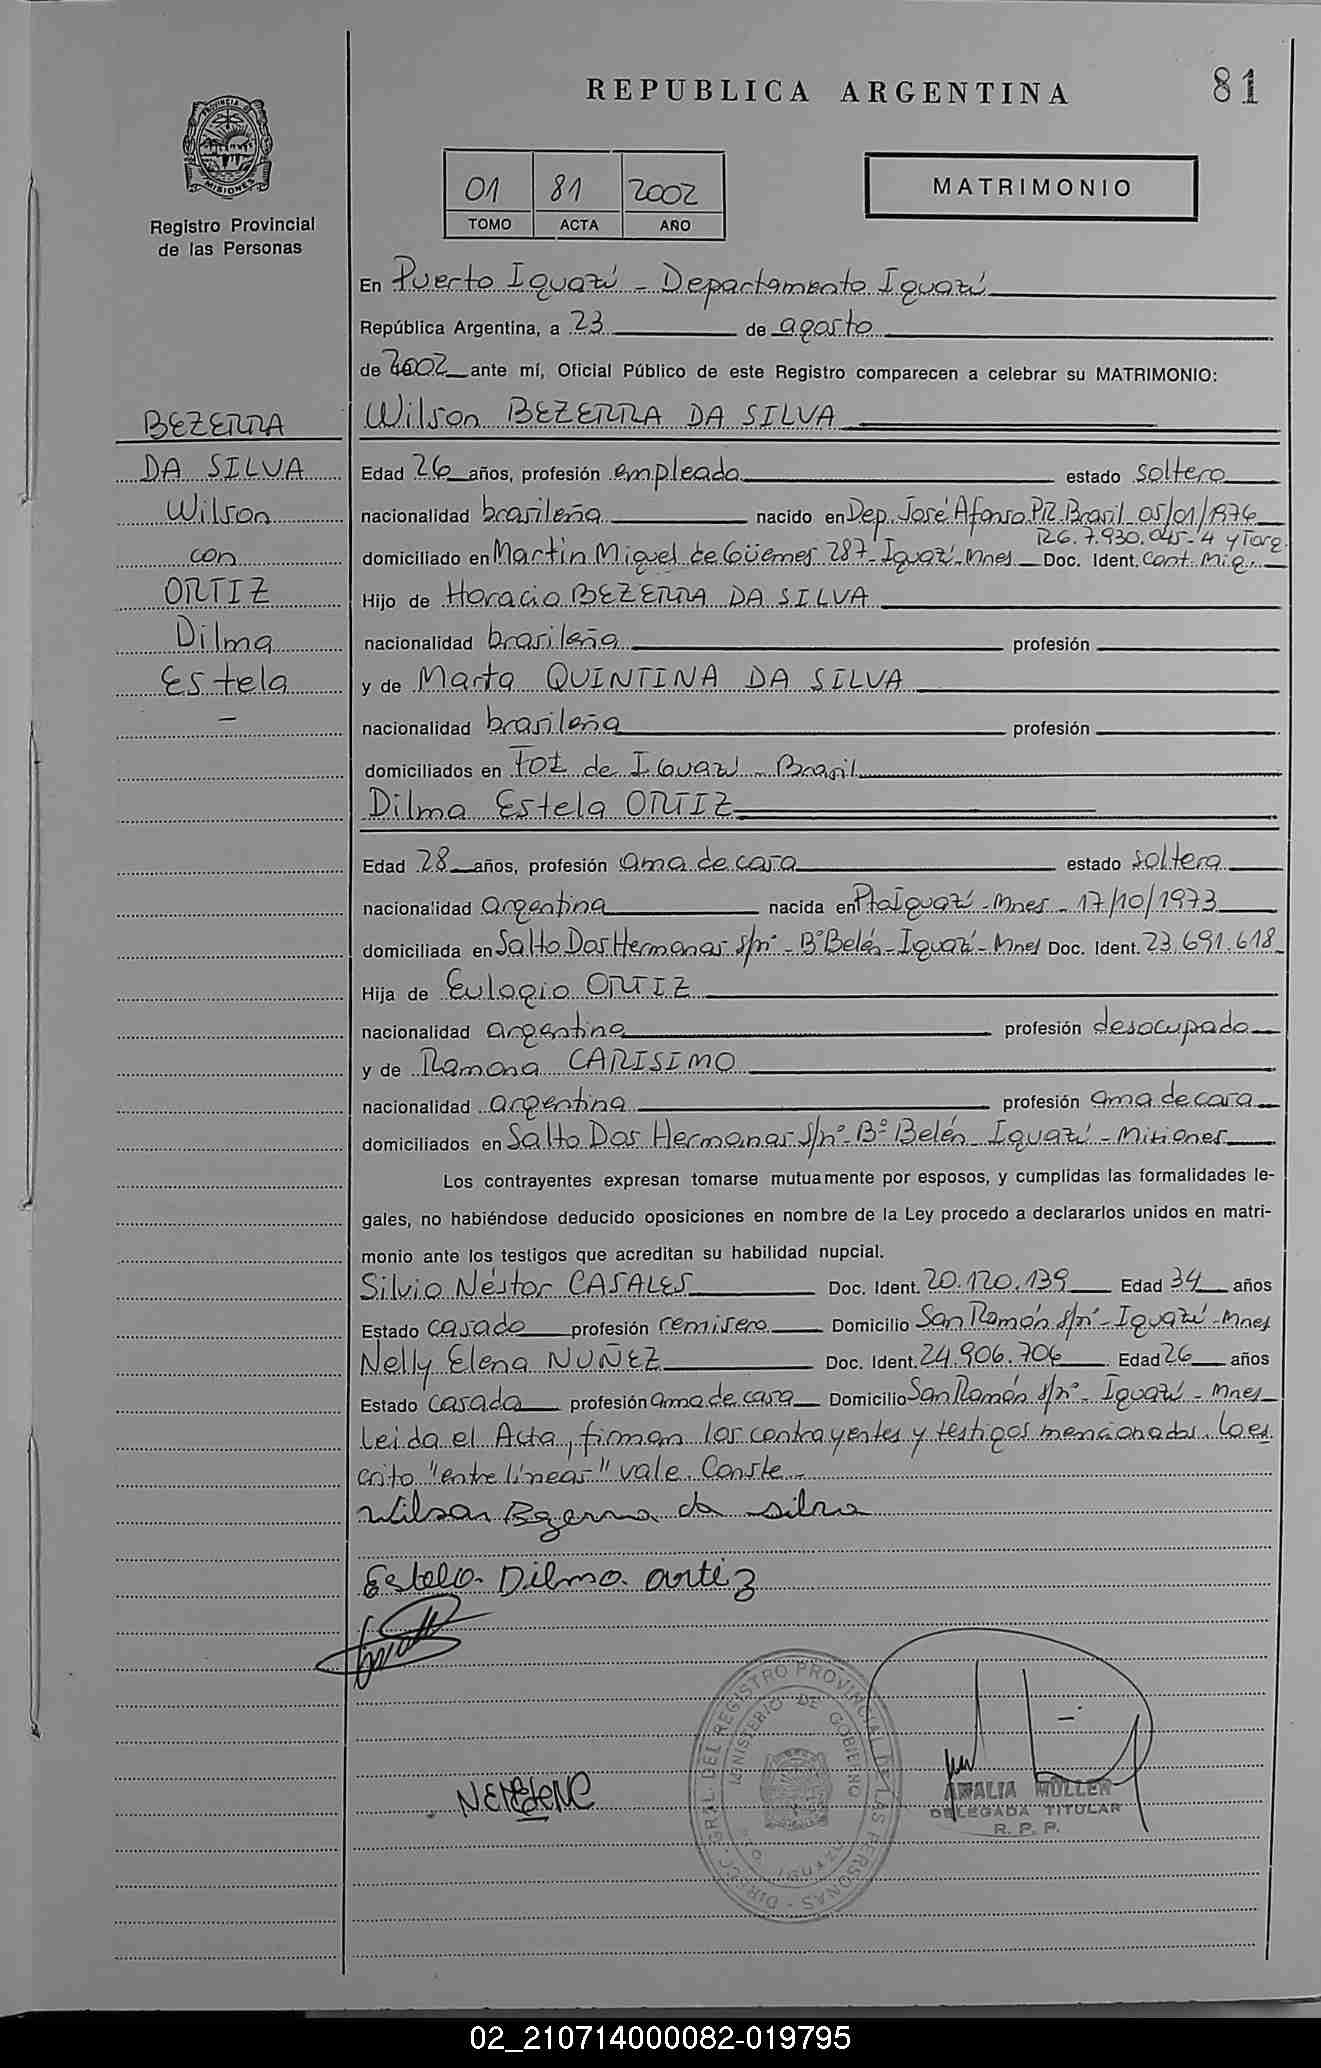 REPUBLICA ARGENTINA
81
PROVINCIA
MISIONES
Registro Provincial
de las Personas
01 81 2002
TOMO ACTA AÑO
MATRIMONIO
En Puerto Iguazú - Departamento Iguazú
República Argentina, a 23 de agosto
de 2002 ante mí, Oficial Público de este Registro comparecen a celebrar su MATRIMONIO:
BEZERRA
DA SILVA
Wilson
con
ORTIZ
Dilma
Estela
Wilson BEZERRA DA SILVA
Edad 26 años, profesión empleado estado soltero
nacionalidad brasileña nacido en Dep. José Afonso PR. Brasil 05/01/1976
R6. 7.930.045-4 y Targ.
domiciliado en Martín Miguel de Güemes 287 - Iguazú - Mnes Doc. Ident. Cont. Mig.
Hijo de Horacio BEZERRA DA SILVA
nacionalidad brasileña profesión
y de Marta QUINTINA DA SILVA
nacionalidad brasileña profesión
domiciliados en Foz de Iguazú - Brasil
Dilma Estela ORTIZ
Edad 28 años, profesión ama de casa estado soltera
nacionalidad argentina nacida en Pto Iguazú - Mnes - 17/10/1973
domiciliada en Salto Dos Hermanas s/nº - Bº Belén - Iguazú - Mnes Doc. Ident. 23.691.618
Hija de Eulogio ORTIZ
nacionalidad argentina profesión desocupado
y de Ramona CARISIMO
nacionalidad argentina profesión ama de casa
domiciliados en Salto Dos Hermanas s/nº - Bº Belén - Iguazú - Misiones
Los contrayentes expresan tomarse mutuamente por esposos, y cumplidas las formalidades le-
gales, no habiéndose deducido oposiciones en nombre de la Ley procedo a declararlos unidos en matri-
monio ante los testigos que acreditan su habilidad nupcial.
Silvio Néstor CASALES Doc. Ident. 20.120.139 Edad 34 años
Estado casado profesión remisero Domicilio San Ramón s/nº - Iguazú - Mnes
Nelly Elena NUÑEZ Doc. Ident. 24.906.706 Edad 26 años
Estado casada profesión ama de casa Domicilio San Ramón s/nº - Iguazú - Mnes
Leida el Acta, firman los contrayentes y testigos mencionados. Lo es
crito "entre líneas" vale. Conste.
Wilson Bezerra da silva
Estela Dilma ortiz
DIRECC. GRAL. DEL REGISTRO PROVINCIAL DE LAS PERSONAS
MINISTERIO DE GOBIERNO
AMALIA MÜLLER
DELEGADA TITULAR
R. P. P.
02_210714000082-019795